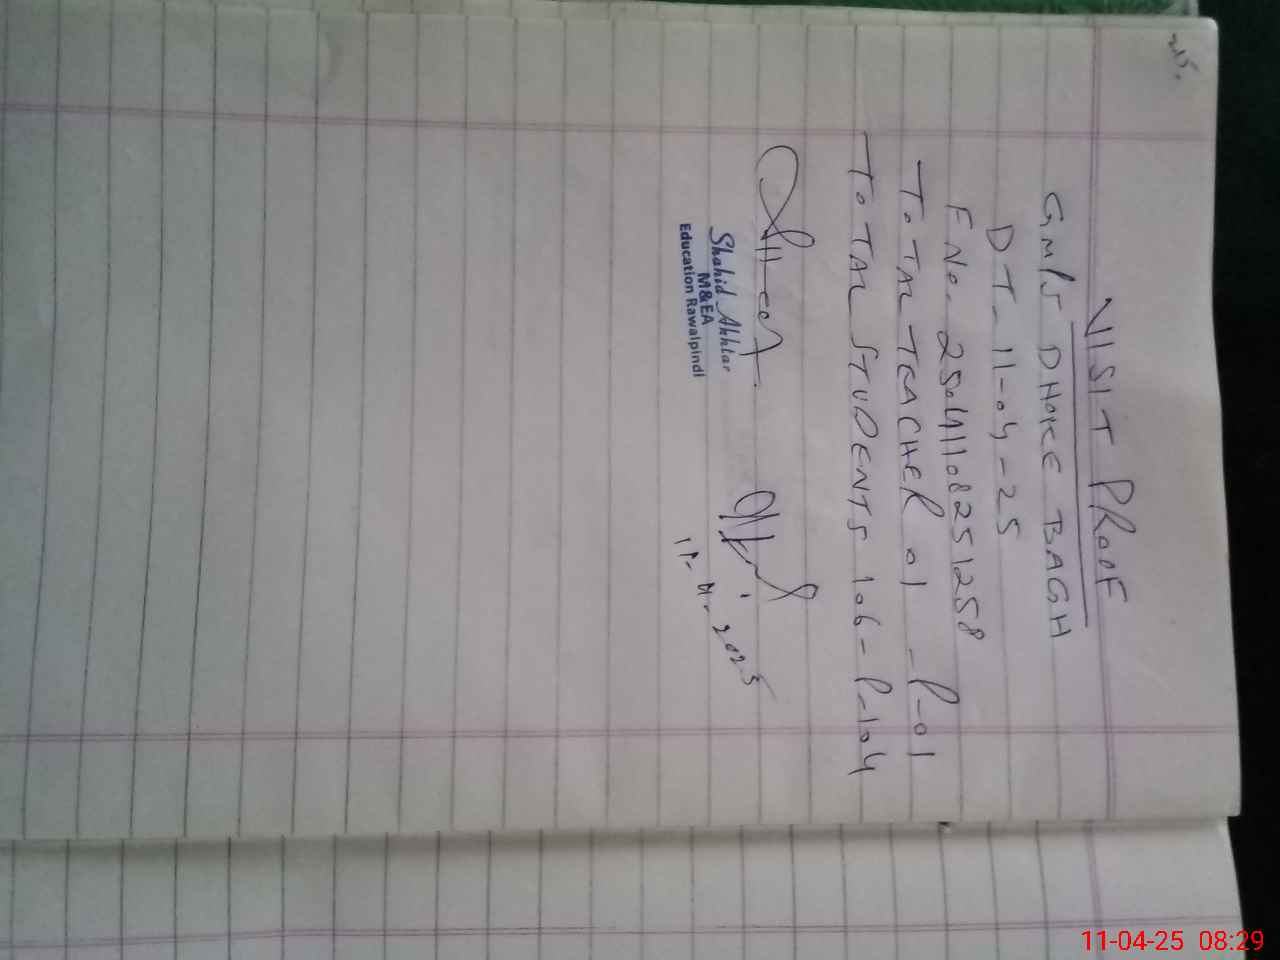 215.
VISIT PROOF
GMPS DHOKE BAGH
DT- 11-04-25
F No. 25041108251258
TOTAL TEACHER 01 - P-01
TOTAL STUDENTS 106 - P-104
Shahid Akhtar
M&EA
Education Rawalpindi
11-4-2025
11-04-25 08:29